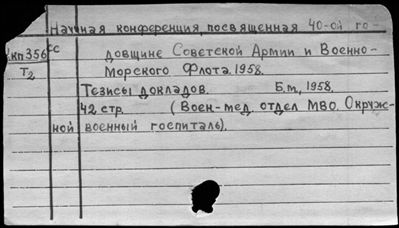 Научная конференция, посвященная 40-ой го-
кп356 сс довщине Советской Армии и Военно-
Т2 Морского Флота. 1958.
Тезисы докладов. Б.м., 1958.
42 стр. (Воен-мед. отдел МВО. Окруж-
ной военный госпиталь).